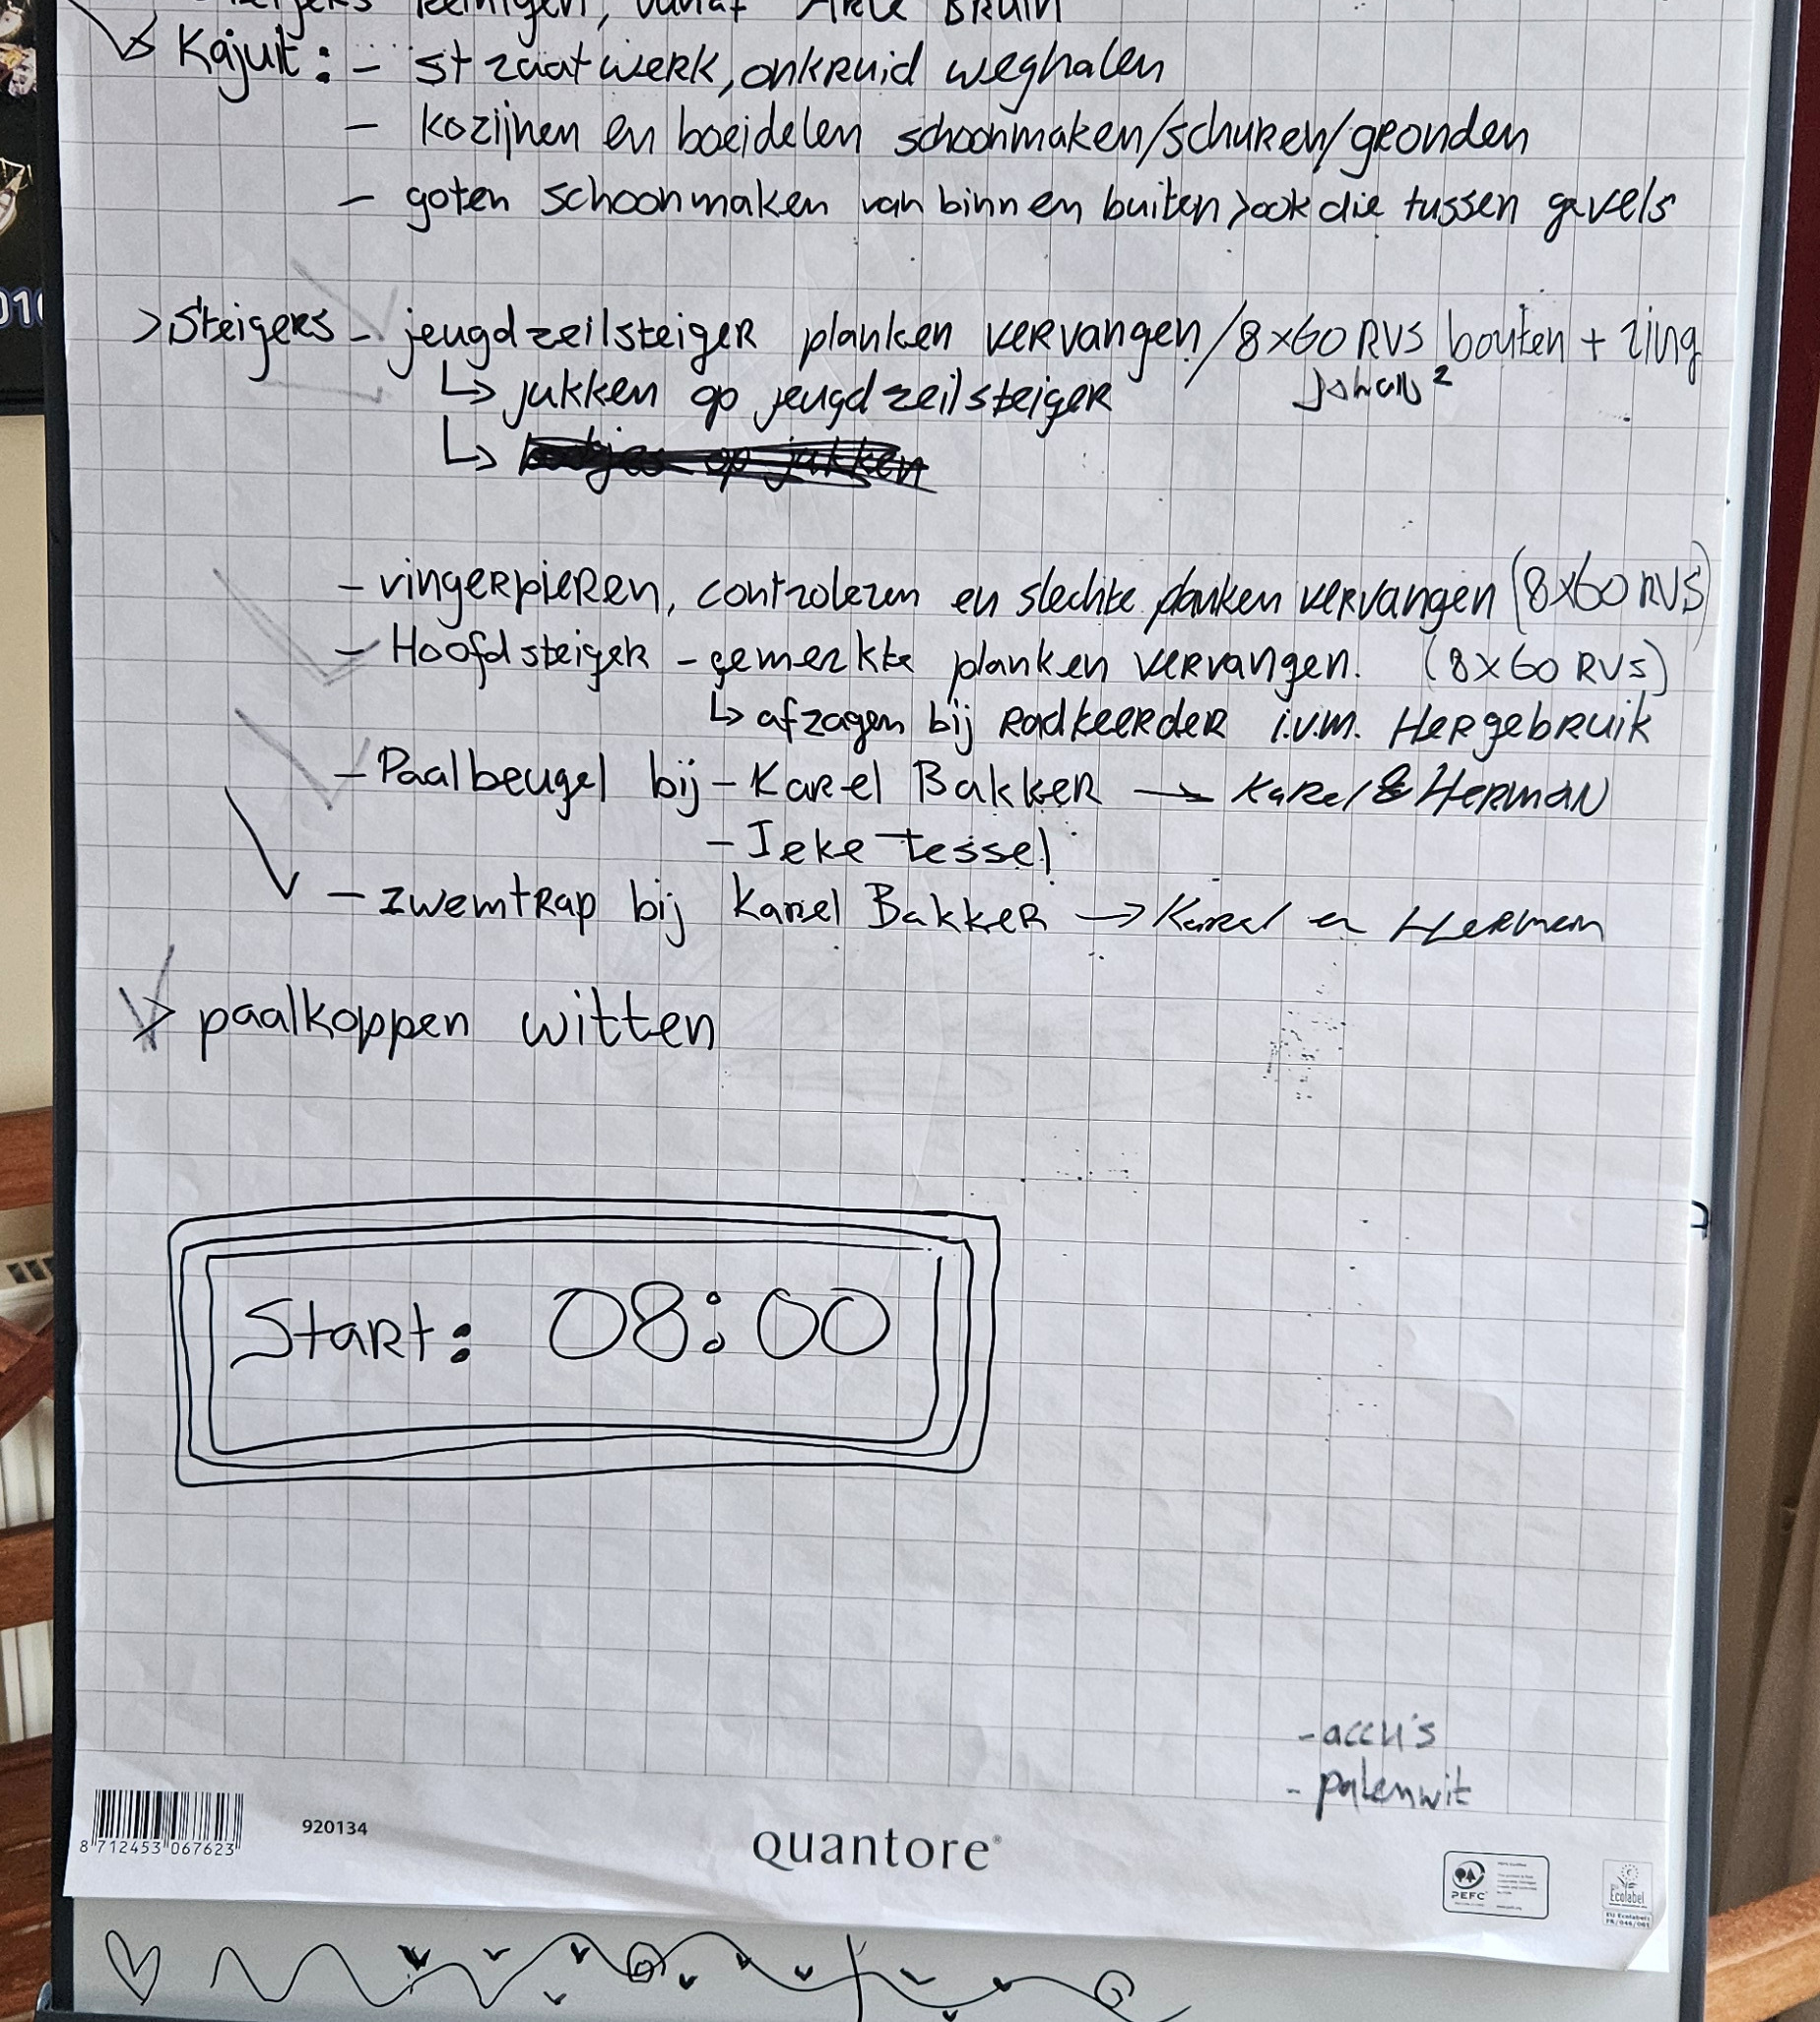 reinigen, vanaf Arie Bruin
Kajuit: - straatwerk, onkruid weghalen
- kozijnen en boeidelen schoonmaken/schuren/gronden
- goten schoonmaken van binnen buiten > ook die tussen gevels
> Steigers - jeugdzeilsteiger planken vervangen / 8x60 RVS bouten + ring
↳ jukken op jeugdzeilsteiger
Johan²
↳ bootjes op jukken
- vingerpieren, controleren en slechte planken vervangen (8x60 RVS)
- Hoofdsteiger - gemerkte planken vervangen. (8x60 RVS)
↳ afzagen bij Radkeerder i.v.m. Hergebruik
- Paalbeugel bij - Karel Bakker → Karel & Herman
- Ieke Tessel
- zwemtrap bij Karel Bakker → Karel en Herman
> paalkoppen witten
Start: 08:00
- accu's
- palenwit
8 712453 067623
920134
quantore
PEFC
Ecolabel